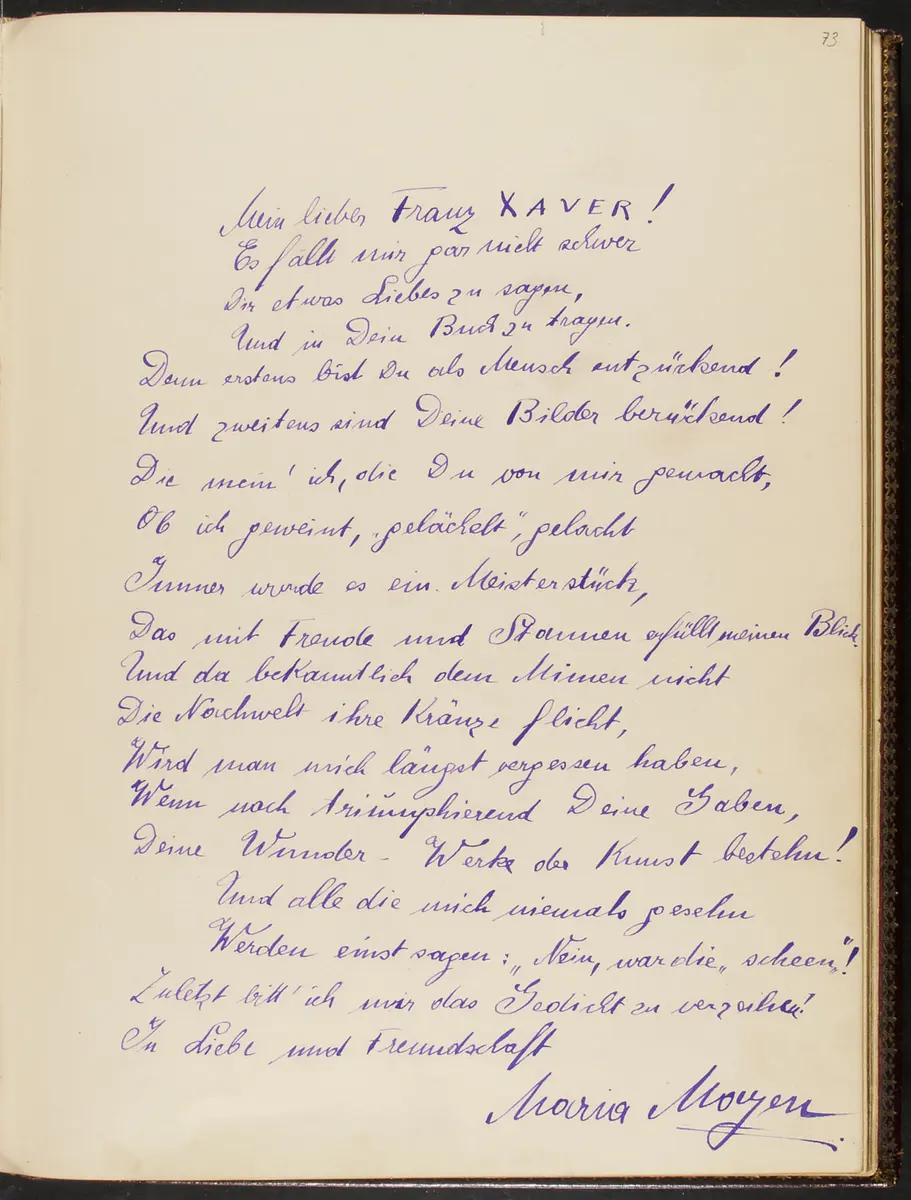 73
Mein lieber Franz XAVER!
Es fällt mir gar nicht schwer
Dir etwas Liebes zu sagen,
Und in Dein Buch zu tragen.
Denn erstens bist Du als Mensch entzückend!
Und zweitens sind Deine Bilder berückend!
Die mein' ich, die Du von mir gemacht,
Ob ich geweint, „gelächelt", gelacht
Immer wurde es ein Meisterstück,
Das mit Freude und Staunen erfüllt meinen Blick.
Und da bekanntlich dem Mimen nicht
Die Nachwelt ihre Kränze flicht,
Wird man mich längst vergessen haben,
Wenn noch triumphierend Deine Gaben,
Deine Wunder-Werke der Kunst bestehn!
Und alle die mich niemals gesehn
Werden einst sagen: „Nein, war die „scheen"!
Zuletzt bitt' ich mir das Gedicht zu verzeihen!
In Liebe und Freundschaft
Maria Mayen